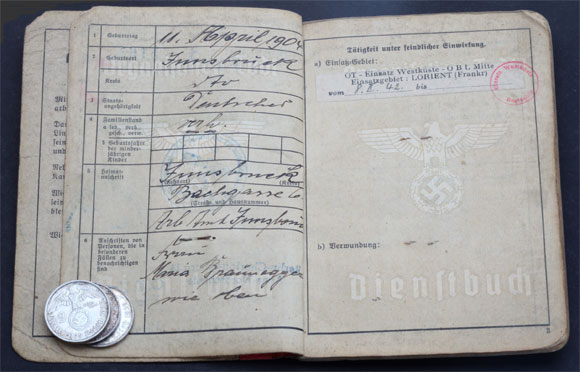 1 Geburtstag 11. April 1904
2 Geburtsort Innsbruck
Kreis dto
3 Staats-
angehörigkeit Deutscher
4 Familienstand
a led. verh.
gesch. verw. vrh.
b Geburtsjahre
der minder-
jährigen
Kinder
5 Heimat-
anschrift Innsbruck
(Kreis)
Bachgasse 6
(Straße und Hausnummer)
Arb. Amt Innsbruck
6 Anschriften von
Personen, die in
besonderen
Fällen zu
benachrichtigen
sind
Frau
Maria
wie oben
Tätigkeit unter feindlicher Einwirkung.
a) Einsatz-Gebiet:
OT - Einsatz Westküste - O B L Mitte
Einsatzgebiet : LORIENT (Frankr)
vom 8.8. 42. bis
b) Verwundung:
Dienstbuch
5